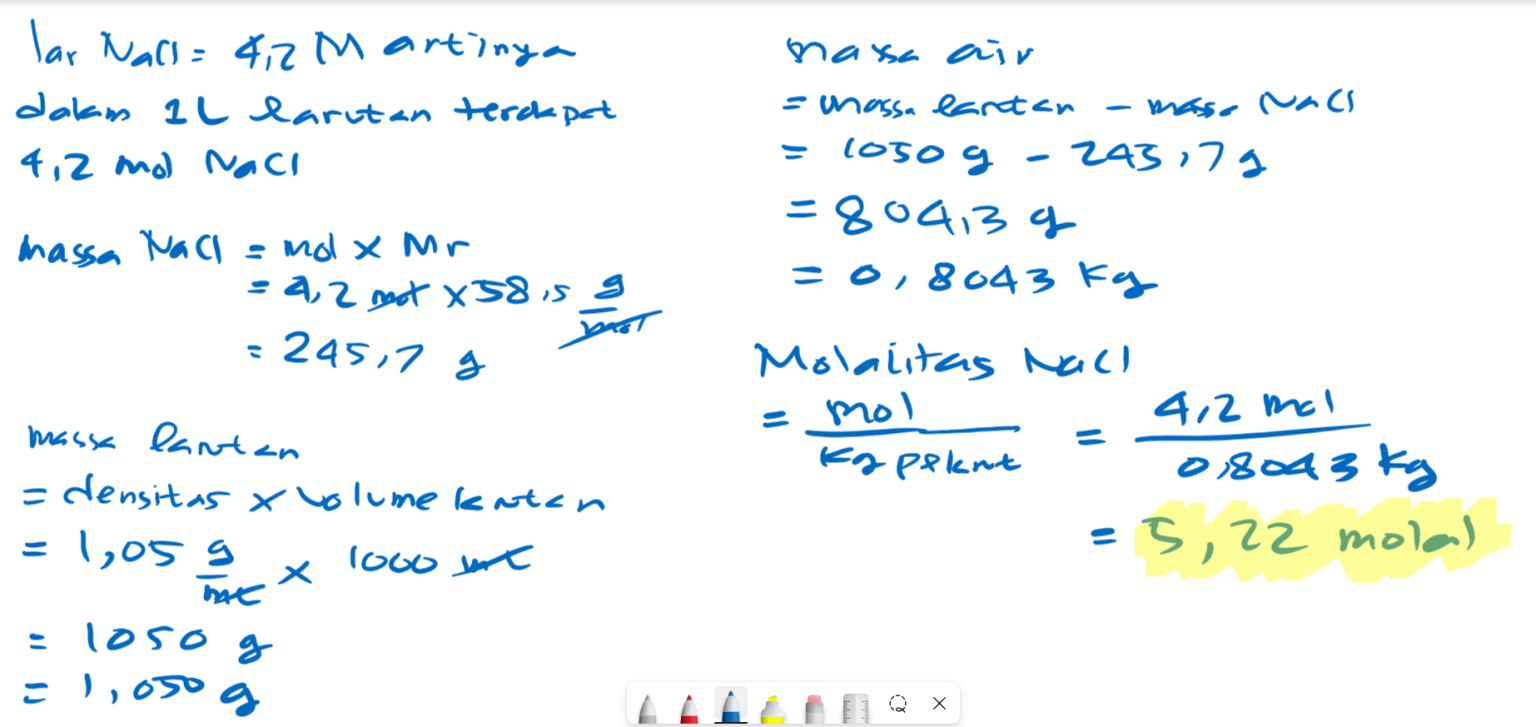 lar NaCl = 4,2 M artinya
dalam 1L larutan terdapat
4,2 mol NaCl
massa NaCl = mol x Mr
= 4,2 mol x 58,5 g/mol
= 245,7 g
massa larutan
= densitas x volume larutan
= 1,05 g/mL x 1000 mL
= 1050 g
= 1,050 g
massa air
= massa larutan - massa NaCl
= 1050 g - 245,7 g
= 804,3 g
= 0,8043 Kg
Molalitas NaCl
= mol / Kg pelarut = 4,2 mol / 0,8043 kg
= 5,22 molal